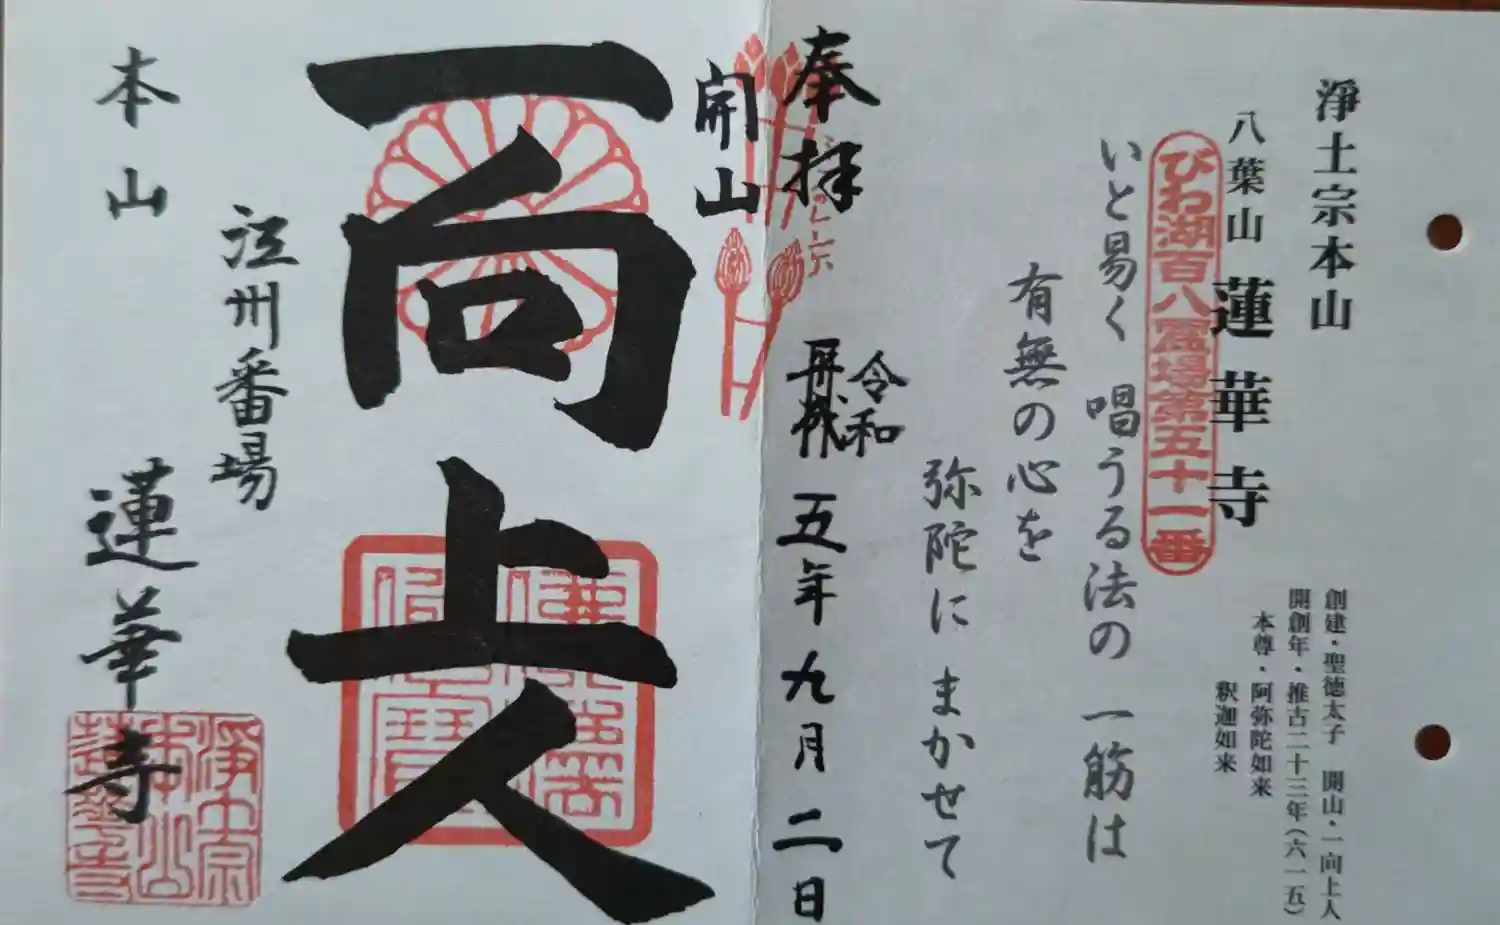 淨土宗本山
八葉山 蓮華寺
創建・聖徳太子 開山・一向上人
開創年・推古二十三年(六一五)
本尊・阿弥陀如来
釈迦如来
びわ湖百八霊場第五十一番
いと易く 唱うる法の 一筋は
有無の心を
弥陀に まかせて
奉拝
令和
五年九月二日
開山
一向上人
江州番場
本山 蓮華寺
淨土宗
本山
蓮華寺